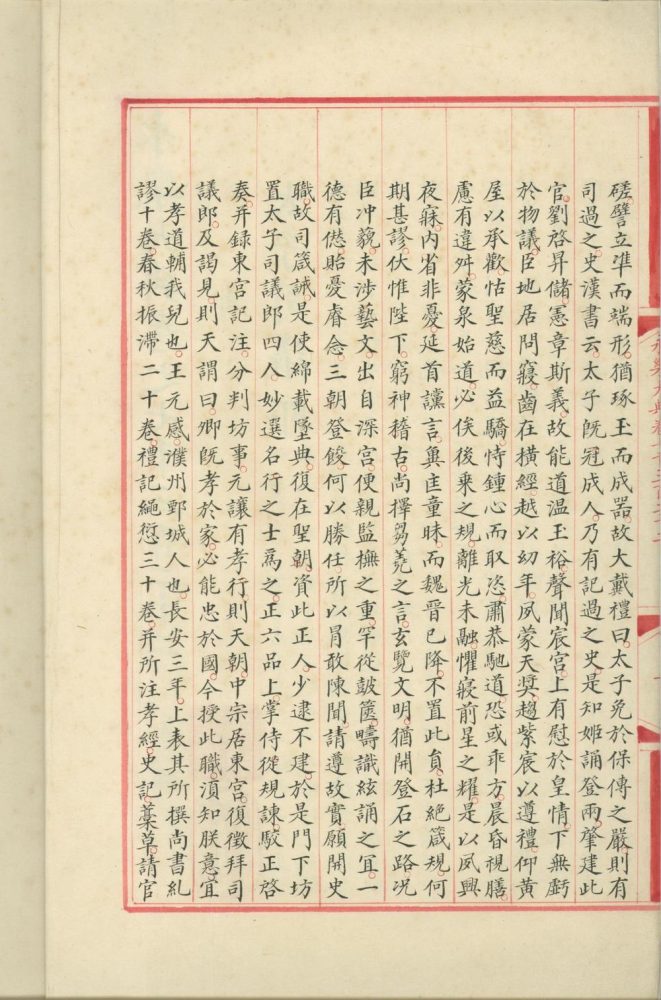 磋。譬立準而端形。猶琢玉而成器。故大戴禮曰。太子免於保傅之嚴。則有
司過之史。漢書云。太子旣冠成人。乃有記過之史。是知姬誦登兩。肇建此
官。劉啓昇儲。憲章斯義。故能道温玉裕。聲聞宸宮。上有慰於皇情。下無虧
於物議。臣地居問寢。齒在横經。越以幼年。夙蒙天奬。趨紫宸以遵禮。仰黄
屋以承歡。怙聖慈而益驕。恃鍾心而取恣。肅恭馳道。恐或乖方。晨昏視膳。
慮有違舛。蒙泉始道。必俟後乘之規。離光未融。懼寢前星之耀。是以夙興
夜寐。内省非憂。延首讜言。冀疐童昧。而魏晉已降。不置此貟。杜絶箴規。何
期甚謬。伏惟陛下。窮神稽古。尚擇芻蕘之言。玄覽文明。猶開登石之路。况
臣冲藐。未渉藝文。出自深宮。便親監橅之重。罕從皷篋。疇識絃誦之宜。一
德有僁。貽憂睿念。三朝登餕。何以勝任。所以冒敢陳聞。請遵故實。願開史
職。故司箴誡。是使綿載墜典。復在聖朝。資此正人。少逮不建。於是門下坊
置太子司議郎四人。妙選名行之士爲之。正六品上。掌侍從規諌。駮正啓
奏。并録東宮記注。分判坊事。元讓有孝行。則天朝。中宗居東宮。復徵拜司
議郎。及謁見。則天謂曰。卿旣孝於家。必能忠於國。今授此職。須知朕意。宜
以孝道輔我兒也。王元感。濮州鄄城人也。長安三年。上表其所撰尚書糺
謬十卷。春秋振滯二十卷。禮記繩愆三十卷。并所注孝經。史記藁草。請官